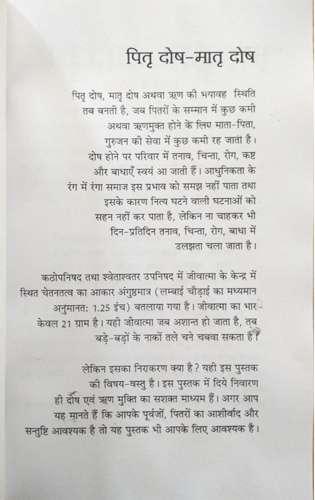 पितृ दोष-मातृ दोष
पितृ दोष, मातृ दोष अथवा ऋण की भयावह स्थिति
तब बनती है, जब पितरों के सम्मान में कुछ कमी
अथवा ऋणमुक्त होने के लिए माता-पिता,
गुरुजन की सेवा में कुछ कमी रह जाता है।
दोष होने पर परिवार में तनाव, चिन्ता, रोग, कष्ट
और बाधाएँ स्वयं आ जाती हैं। आधुनिकता के
रंग में रंगा समाज इस प्रभाव को समझ नहीं पाता तथा
इसके कारण नित्य घटने वाली घटनाओं को
सहन नहीं कर पाता है, लेकिन ना चाहकर भी
दिन-प्रतिदिन तनाव, चिन्ता, रोग, बाधा में
उलझता चला जाता है।
कठोपनिषद तथा श्वेताश्वतर उपनिषद में जीवात्मा के केन्द्र में
स्थित चेतनतत्व का आकार अंगुष्ठमात्र (लम्बाई चौड़ाई का मध्यमान
अनुमानत: 1.25 इंच) बतलाया गया है। जीवात्मा का भार
केवल 21 ग्राम है। यही जीवात्मा जब अशान्त हो जाता है, तब
बड़े-बड़ों के नाकों तले चने चबवा सकता है।
लेकिन इसका निराकरण क्या है? यही इस पुस्तक
की विषय-वस्तु है। इस पुस्तक में दिये निवारण
ही दोष एवं ऋण मुक्ति का सशक्त माध्यम हैं। अगर आप
यह मानते हैं कि आपके पूर्वजों, पितरों का आशीर्वाद और
सन्तुष्टि आवश्यक है तो यह पुस्तक भी आपके लिए आवश्यक है।